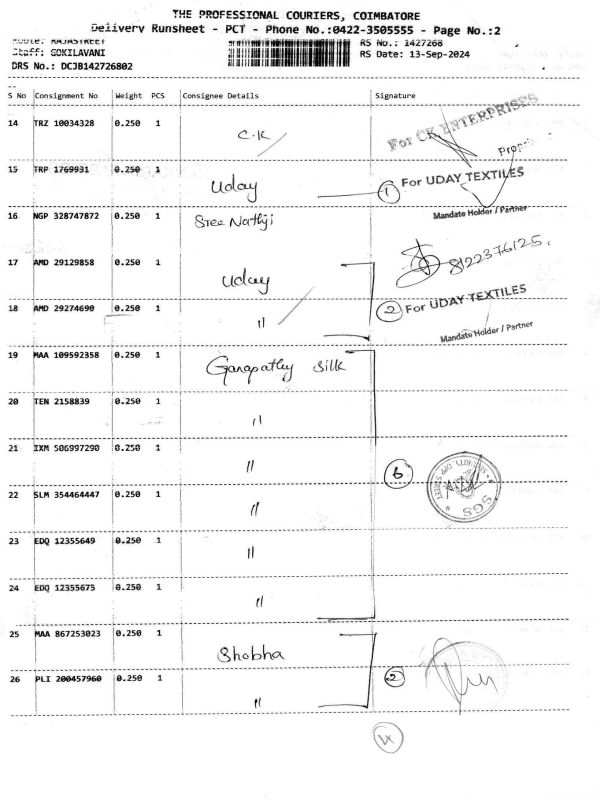 THE PROFESSIONAL COURIERS, COIMBATORE
Delivery Runsheet - PCT - Phone No.:0422-3505555 - Page No.:2
Route: RAJASTREET
RS No.: 1427268
Staff: GOKILAVANI
RS Date: 13-Sep-2024
DRS No.: DCJB142726802
S No Consignment No Weight PCS Consignee Details Signature
14 TRZ 10034328 0.250 1 C.K For CK ENTERPRISES
15 TRP 1769931 0.250 1 Uday 1 For UDAY TEXTILES
Mandate Holder / Partner
16 NGP 328747872 0.250 1 Sree Nathji 8122376125.
17 AMD 29129858 0.250 1 Uday
18 AMD 29274690 0.250 1 " 2 For UDAY TEXTILES
Mandate Holder / Partner
19 MAA 109592358 0.250 1 Ganapathy Silk
20 TEN 2158839 0.250 1 "
21 IXM 506997290 0.250 1 " 6 SGS
22 SLM 354464447 0.250 1 "
23 EDQ 12355649 0.250 1 "
24 EDQ 12355675 0.250 1 "
25 MAA 867253023 0.250 1 Shobha
26 PLI 200457960 0.250 1 " 2